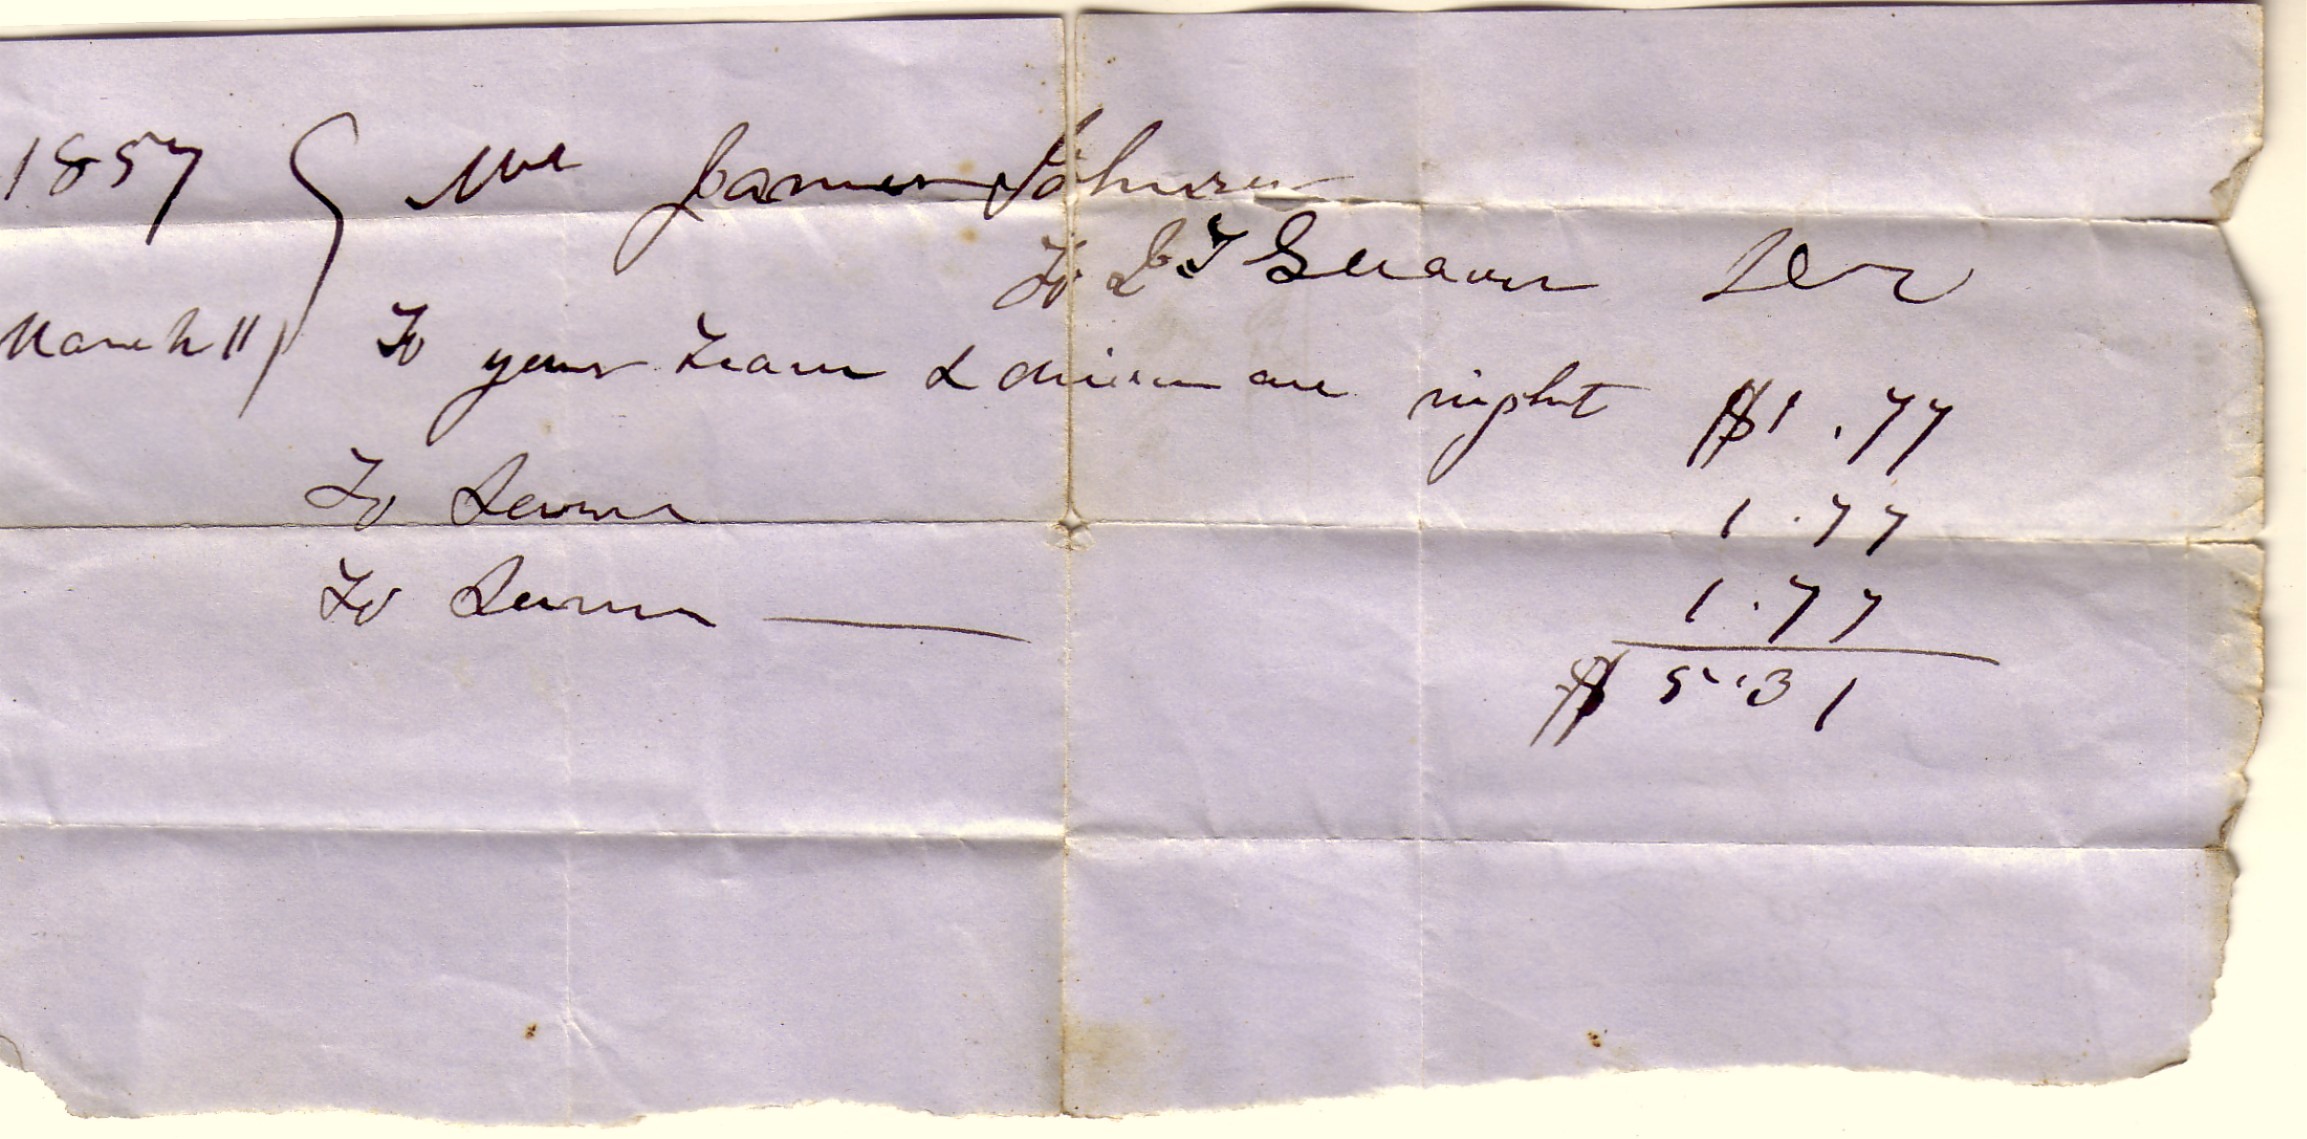 1857 Mr James Johnson
To J T Dr
March 11 To your team & driver one night $1.77
To Same 1.77
To Same 1.77
$5.31